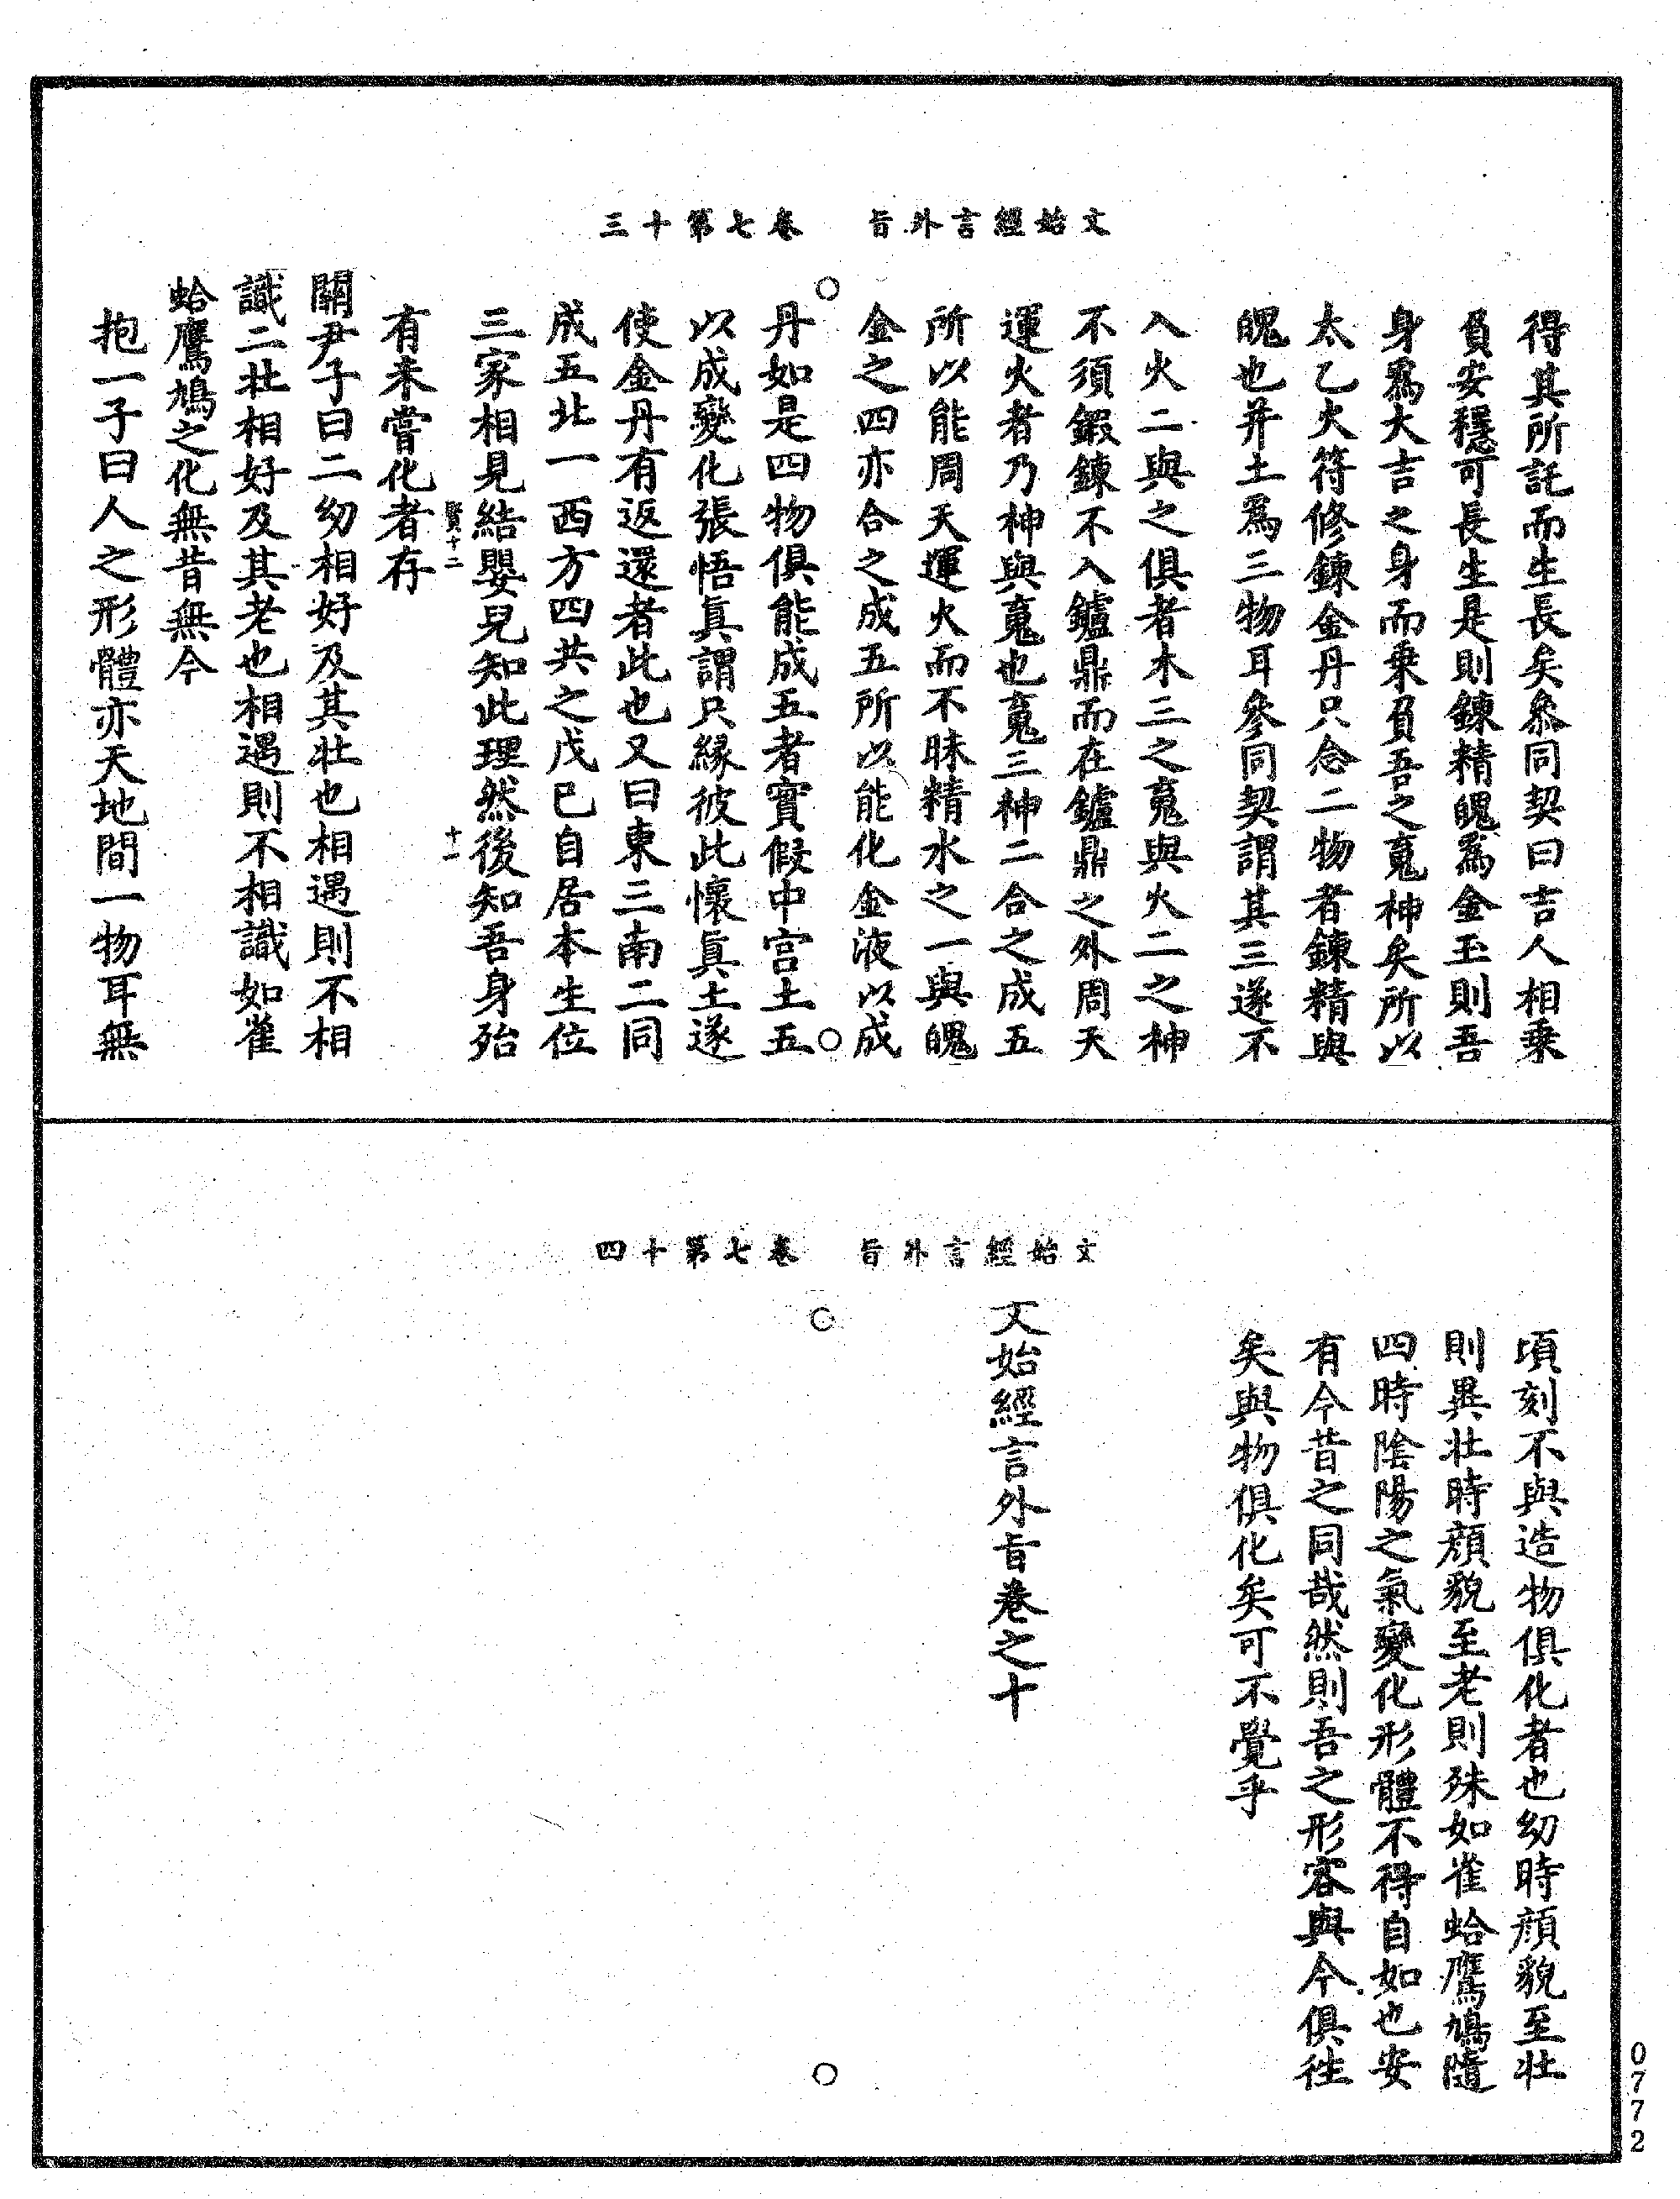 文始經言外旨　卷七第十三
得其所託而生長矣叅同契曰吉人相乗
負安穩可長生是則鍊精魄爲金玉則吾
身爲大吉之身而乗負吾之䰟神矣所以
太乙火符修鍊金丹只念二物者鍊精與
魄也并土爲三物耳參同契謂其三遂不
入火二與之俱者木三之䰟與火二之神
不須鍛鍊不入鑪鼎而在鑪鼎之外周天
運火者乃神與䰟也䰟三神二合之成五
所以能周天運火而不昧精水之一與魄
金之四亦合之成五所以能化金液以成
丹如是四物俱能成五者實假中宫土五
以成變化張悟真謂只緣彼此懷真土遂
使金丹有返還者此也又曰東三南二同
成五北一西方四共之戊已自居本生位
三家相見結嬰兒知此理然後知吾身殆
賢十二　十一
有未嘗化者存
關尹子曰二幼相好及其壯也相遇則不相
識二壯相好及其老也相遇則不相識如雀
蛤鷹鳩之化無昔無今
抱一子曰人之形體亦天地間一物耳無
文始經言外旨　卷七第十四
頃刻不與造物俱化者也幼時顔貌至壯
則異壯時顔貌至老則殊如雀蛤鷹鳩隨
四時陰陽之氣變化形體不得自如也安
有今昔之同哉然則吾之形容與今俱徃
矣與物俱化矣可不覺乎
文始經言外旨卷之十
0772